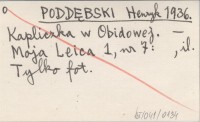 o PODDĘBSKI Henryk 1936.
Kapliczka w Obidowej. —
Moja Leica 1, nr 7: , il.
Tylko fot.